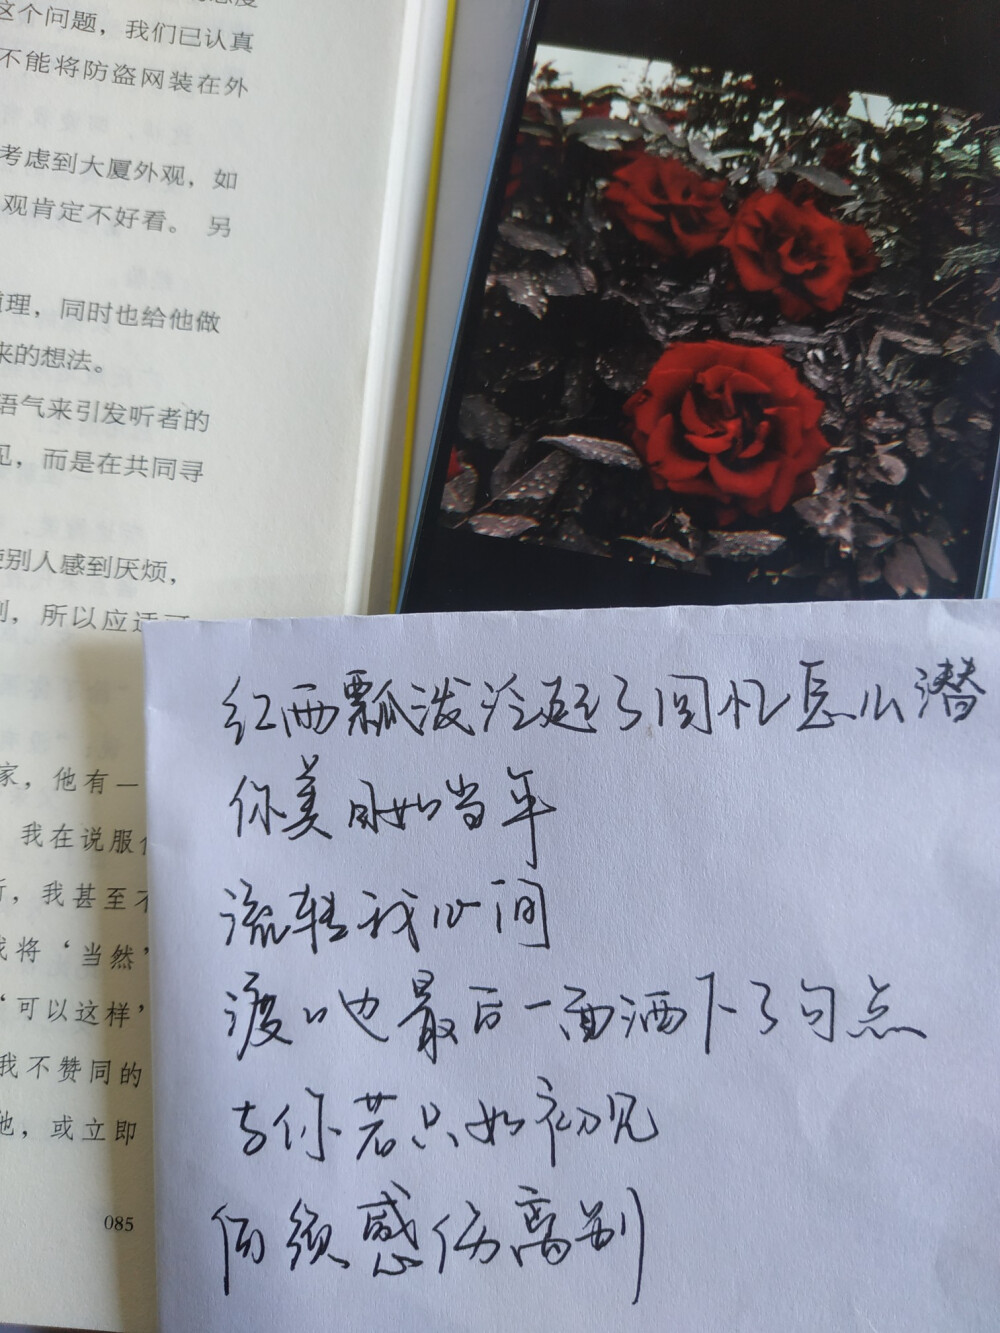 这个问题，我们已认真
不能将防盗网装在外
考虑到大厦外观，如
观肯定不好看。 另
道理，同时也给他做
来的想法。
语气来引发听者的
见，而是在共同寻
使别人感到厌烦，
所以应适可
家，他有一
我在说服
我甚至不
我将‘当然’
‘可以这样’
我不赞同的
他，或立即
085
红雨瓢泼泛起了回忆怎么潜
你美目如当年
流转我心间
渡口边最后一面洒下了句点
与你若只如初见
何须感伤离别